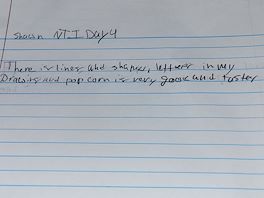 Shawn NTI Day 4
There is lines and shapes, letters in my
Drawing and popcorn is very good and taster